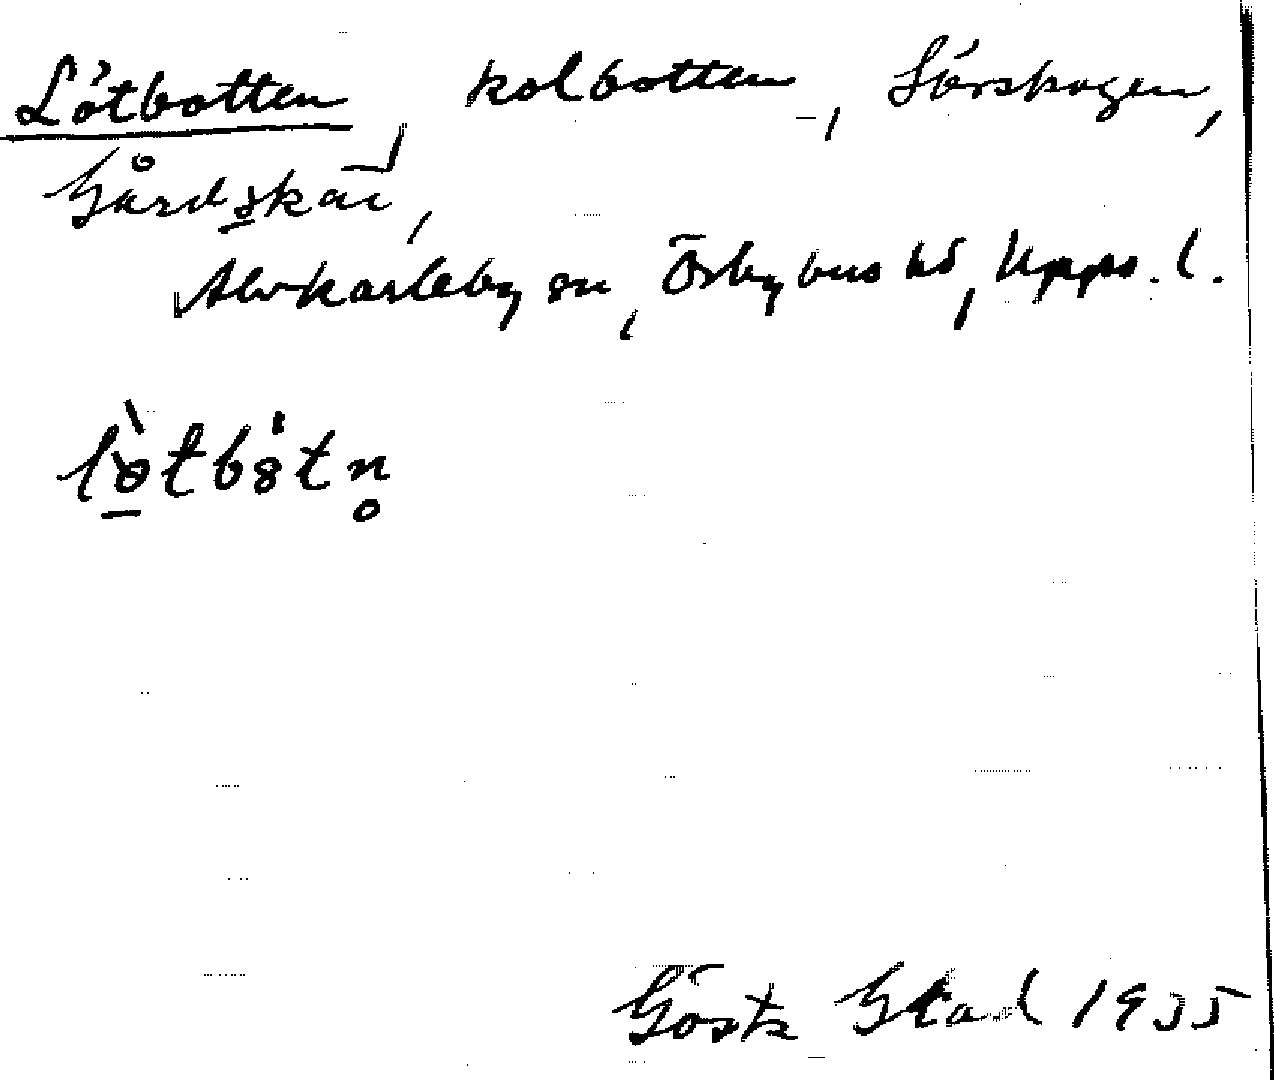 Lötbotten, kolbotten, Sörskogen,
Gårdskär,
Älvkarleby sn, Örbyhus hd, Upps. l.
lòtbòtn̥
Gösta 1935